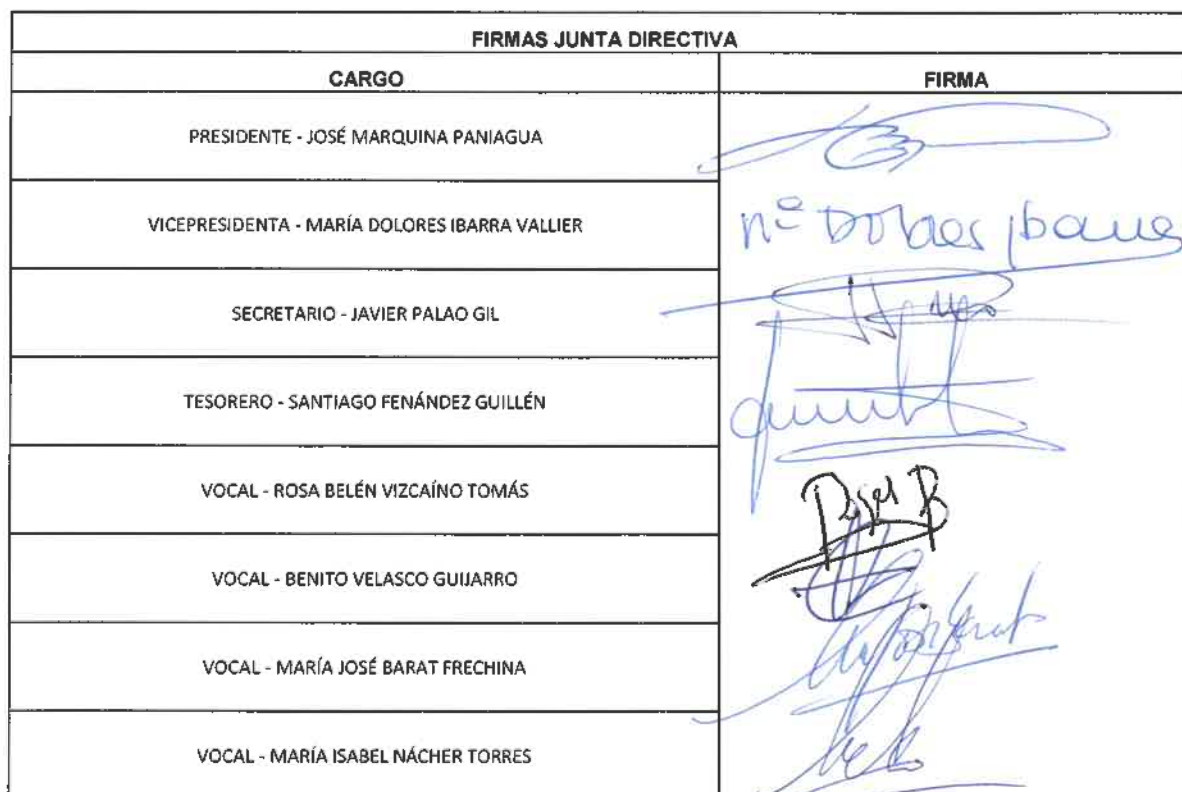 FIRMAS JUNTA DIRECTIVA
CARGO FIRMA
PRESIDENTE - JOSÉ MARQUINA PANIAGUA
VICEPRESIDENTA - MARÍA DOLORES IBARRA VALLIER
SECRETARIO - JAVIER PALAO GIL
TESORERO - SANTIAGO FENÁNDEZ GUILLÉN
VOCAL - ROSA BELÉN VIZCAÍNO TOMÁS
VOCAL - BENITO VELASCO GUIJARRO
VOCAL - MARÍA JOSÉ BARAT FRECHINA
VOCAL - MARÍA ISABEL NÁCHER TORRES